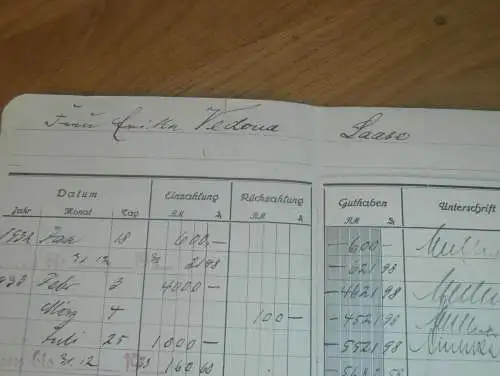 Frau Erika Vedova Laase
Datum Einzahlung Rückzahlung Guthaben Unterschrift
Jahr Monat Tag RM ₰ RM ₰ RM ₰
1932 18 600,— —600—
31.12 21 98 —621 98
933 Febr 3 4000— —4621 98
März 4 100— —4521 98
Juli 25 1000— —5521 98
31.12 160 68